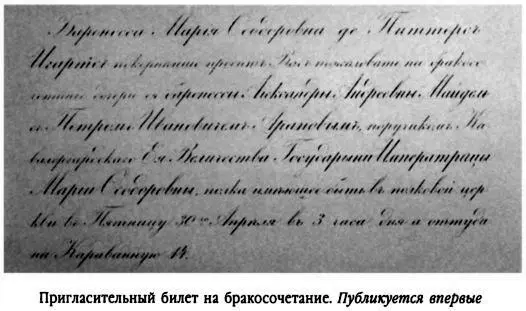 Баронесса Марія Ѳеодоровна де Питтерсъ
Хгартсъ покорнѣйше проситъ Васъ пожаловать на бракосо-
четаніе дочери ея баронессы Александры Андреевны Мандель
съ Петромъ Ивановичемъ Араповымъ, поручикомъ Ка-
валергардскаго Ея Величества Государыни Императрицы
Маріи Ѳеодоровны, полка имѣющее быть въ полковой цер-
кви въ Пятницу 30го Апрѣля въ 3 часа дня а оттуда
на Караванную 14.
Пригласительный билет на бракосочетание. Публикуется впервые